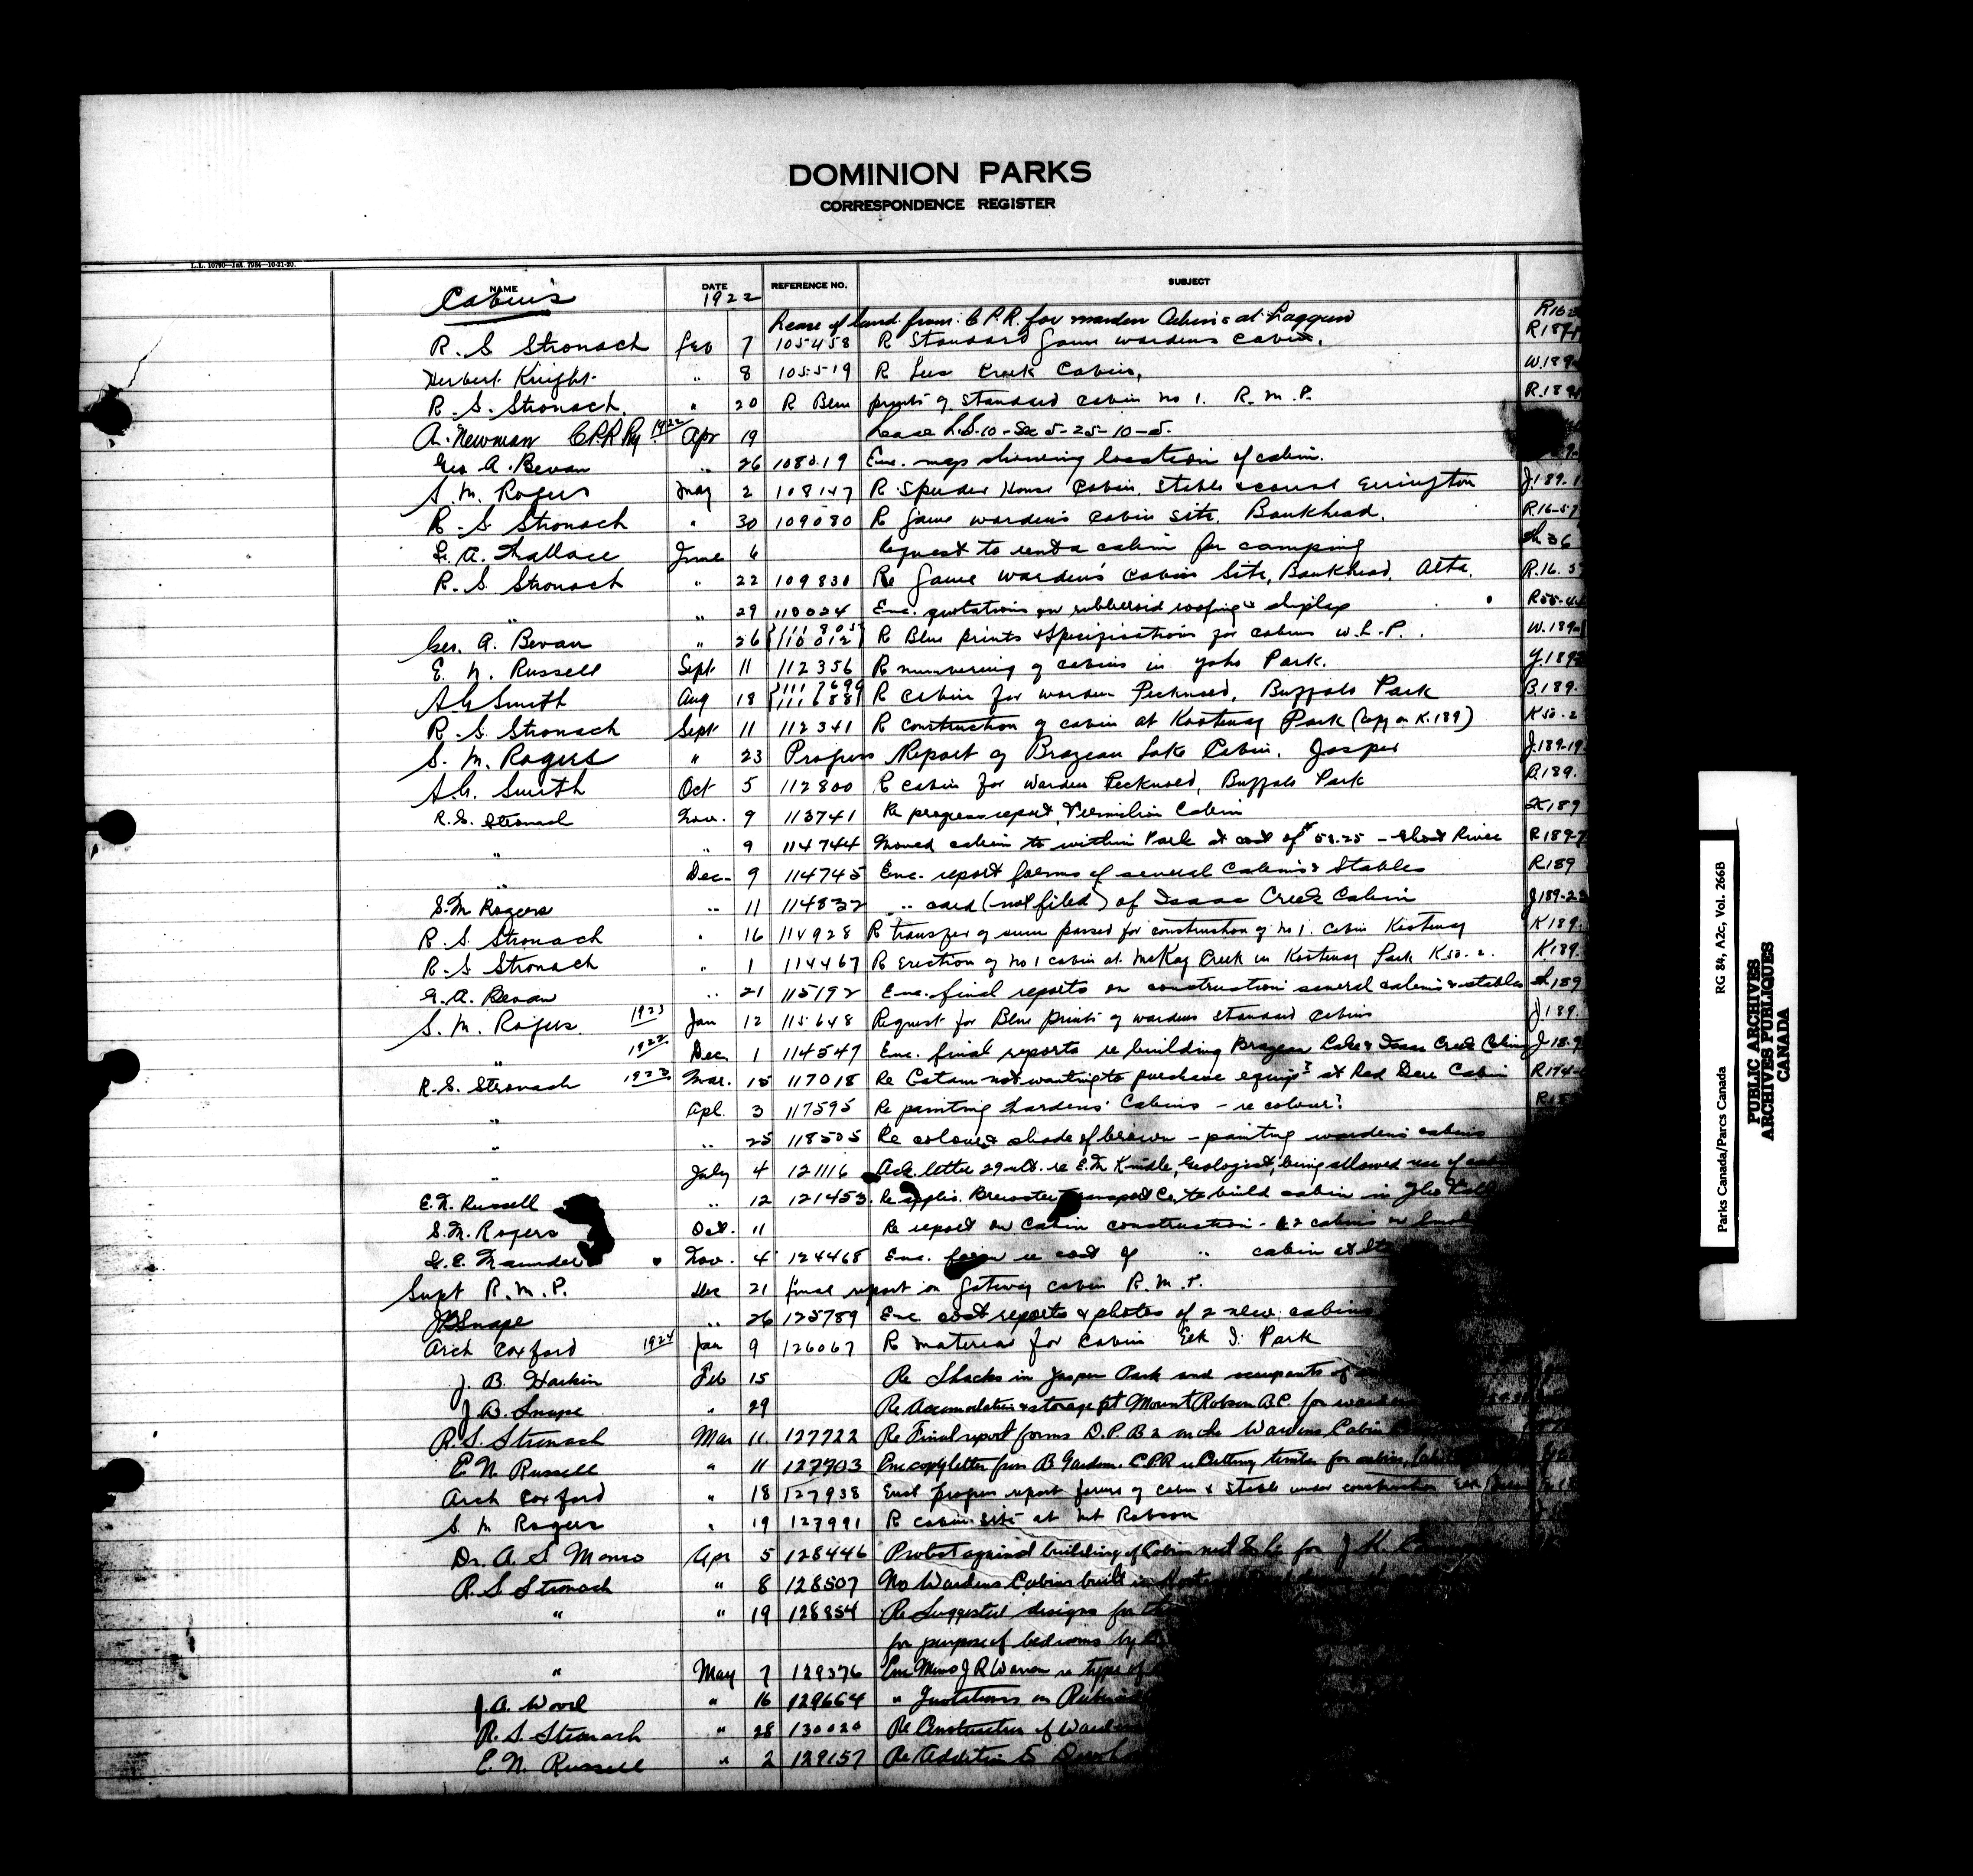 DOMINION PARKS
CORRESPONDENCE REGISTER
L.L. 10790—Int. 7984—10-21-20.
NAME DATE REFERENCE NO. SUBJECT
Cabins 1922
Lease of land from C.P.R. for warden Cabins at Laggan R16-2
R. S Stronach Feb 7 105458 R Standard Game wardens cabin. R189-1
Herbert Knight " 8 105519 R Creek Cabin, W.189
R. S. Stronach. " 20 R Blue prints of Standard cabin no 1. R. M. P. R.189
A. Newman C.P.R Ry. 1922 Apr 19 Lease L.S.10-Sec 5-25-10-5.
Geo A. Bevan " 26 108019 Enc. map showing location of cabin.
S. M. Rogers May 2 108147 R Speeder House Cabin, Stable & corral Errington J.189.1
R. S Stronach " 30 109080 R Game warden's cabin site, Bankhead. R.16-57
June 6 Request to rent a cabin for camping 36
R. S Stronach " 22 109830 Re Game Warden's Cabin Site, Bankhead, Alta. R.16.57
" " 29 110024 Enc. quotations on rubberoid roofing & shiplap R55-4
Geo. A. Bevan " 26 110012 R Blue prints & Specifications for cabins W.L.P. W.189
E. N. Russell Sept 11 112356 R numbering of cabins in Yoho Park. Y.189
A.G Smith Aug 18 111688 R cabin for warden Pecknold, Buffalo Park B.189.
R. S. Stronach Sept 11 112341 R construction of cabin at Kootenay Park (copy on K.189) K50-2
S. M. Rogers " 23 Progress Report of Brazeau Lake Cabin. Jasper J.189-19
A.G. Smith Oct 5 112800 R cabin for Warden Pecknold, Buffalo Park B.189.
R.S. Stronach Nov. 9 113741 Re progress report, Vermilion Cabin K189
" " 9 114744 Moved cabin to within Park at cost of $58.25 - Ghost River R189-7
" Dec. 9 114745 Enc. report forms of several Cabins & Stables R189
S.M Rogers " 11 114832 " card (not filed) of Isaac Creek Cabin J189-23
R. S. Stronach " 16 114928 R transfer of sum passed for construction of No 1. Cabin Kootenay K189.
R. S Stronach " 1 114467 R Erection of No 1 cabin at McKay Creek in Kootenay Park K50.2. K.189.
G. A. Bevan " 21 115192 Enc. final reports on construction several cabins & stables 189
S. M. Rogers 1923 Jan 12 115648 Request for Blue prints of wardens standard cabins J.189.
" 1922 Dec. 1 114547 Enc. final reports re building Brazeau Lake & Isaac Creek Cabins J.189
R.S. Stronach 1923 Mar. 15 117018 Re not wanting to purchase equipt at Red Deer Cabin R174
" Apl. 3 117595 Re painting Wardens' Cabins - re colour?
" " 25 118505 Re colour & shade of brown - painting wardens' cabins
" July 4 121116 Ack. letter 29 ult. re E.M. Kindle, Geologist, being allowed use of
E.N. Russell " 12 121453 Re applic. Brewster Transport Co. to build cabin in Yoho
S.M. Rogers Oct. 11 Re report on Cabin construction - 2 cabins on
Nov. 4 124468 Enc. form re cost of " cabin at
Supt R.M.P. Dec 21 final report on Gateway cabin R.M.P.
J B Snape " 26 125789 Enc. cost reports & photos of 2 new cabins
Arch Coxford 1924 Jan 9 126067 R material for cabin Elk I. Park
J. B. Harkin Feb 15 Re Shacks in Jasper Park and occupants of
J. B. Snape " 29 Re Accomodation & storage at Mount Robson B.C. for
R.S. Stronach Mar 11 127722 Re Final report forms D.P.B 2 Wardens Cabin
E N. Russell " 11 127703 Enc copy letter from B Gardom. C.P.R re Cutting timber for cabins
Arch Coxford " 18 127938 Encl progress report forms of cabin & stable under construction
S. M Rogers " 19 127991 R cabin site at Mt Robson
Dr. A. S Monro Apr 5 128446 Protest against building of Cabin
R.S Stronach " 8 128507 No Wardens Cabins built in
" " 19 128854 Re Suggested designs for
for purpose of bedrooms by
" May 7 129376 Enc Memo J R Warren re type of
J.A. Wood " 16 129664 " Quotations on
R. S. Stronach " 28 130020 Re Construction of
E. N. Russell " 2 129157 Re Addition to
Parks Canada/Parcs Canada RG 84, A2c, Vol. 266B
PUBLIC ARCHIVES
ARCHIVES PUBLIQUES
CANADA